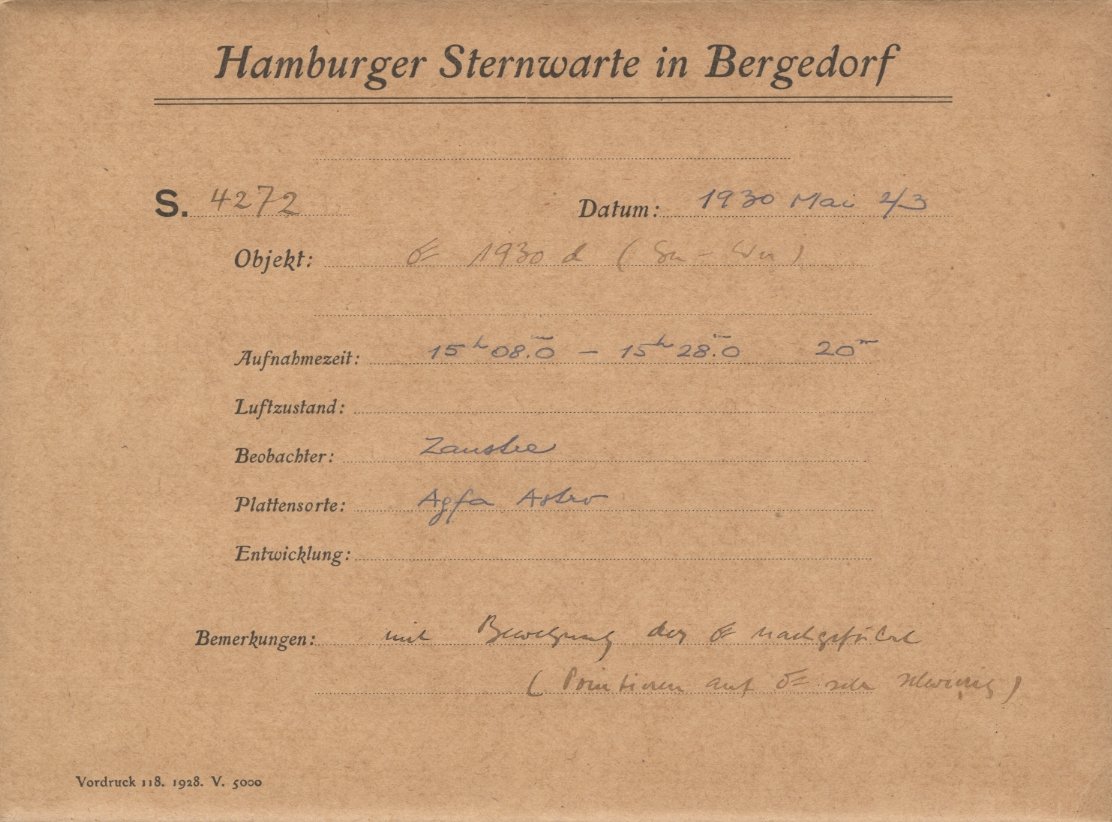 Hamburger Sternwarte in Bergedorf
S. 4272 Datum: 1930 Mai 2/3
Objekt: ☄ 1930 d (
Aufnahmezeit: 15ʰ 08.ᵐ0 – 15ʰ 28.ᵐ0 20ᵐ
Luftzustand:
Beobachter:
Plattensorte: Agfa Astro
Entwicklung:
Bemerkungen: mit Bewegung des ☄ nachgeführt
(Pointieren auf ☄ sehr schwierig)
Vordruck 118. 1928. V. 5000